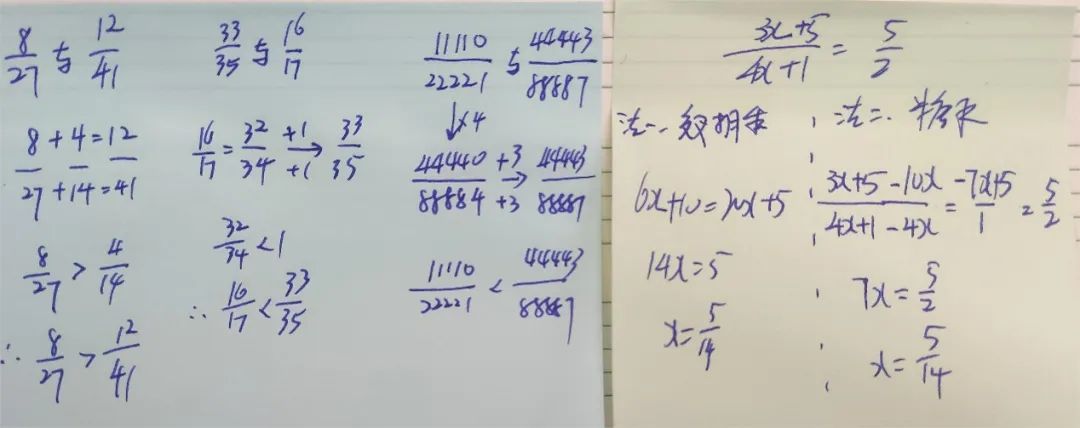 8/27 与 12/41
8+4=12
27+14=41
8/27 > 4/14
∴ 8/27 > 12/41
33/35 与 16/17
16/17 = 32/34 +1/+1 → 33/35
32/34 < 1
∴ 16/17 < 33/35
11110/22221 与 44443/88887
↓×4
44440/88884 +3/+3 → 44443/88887
11110/22221 < 44443/88887
(3x+5)/(4x+1) = 5/2
法一.
6x+10=20x+5
14x=5
x=5/14
法二.
(3x+5-10x)/(4x+1-4x) = (-7x+5)/1 = 5/2
7x=5/2
x=5/14